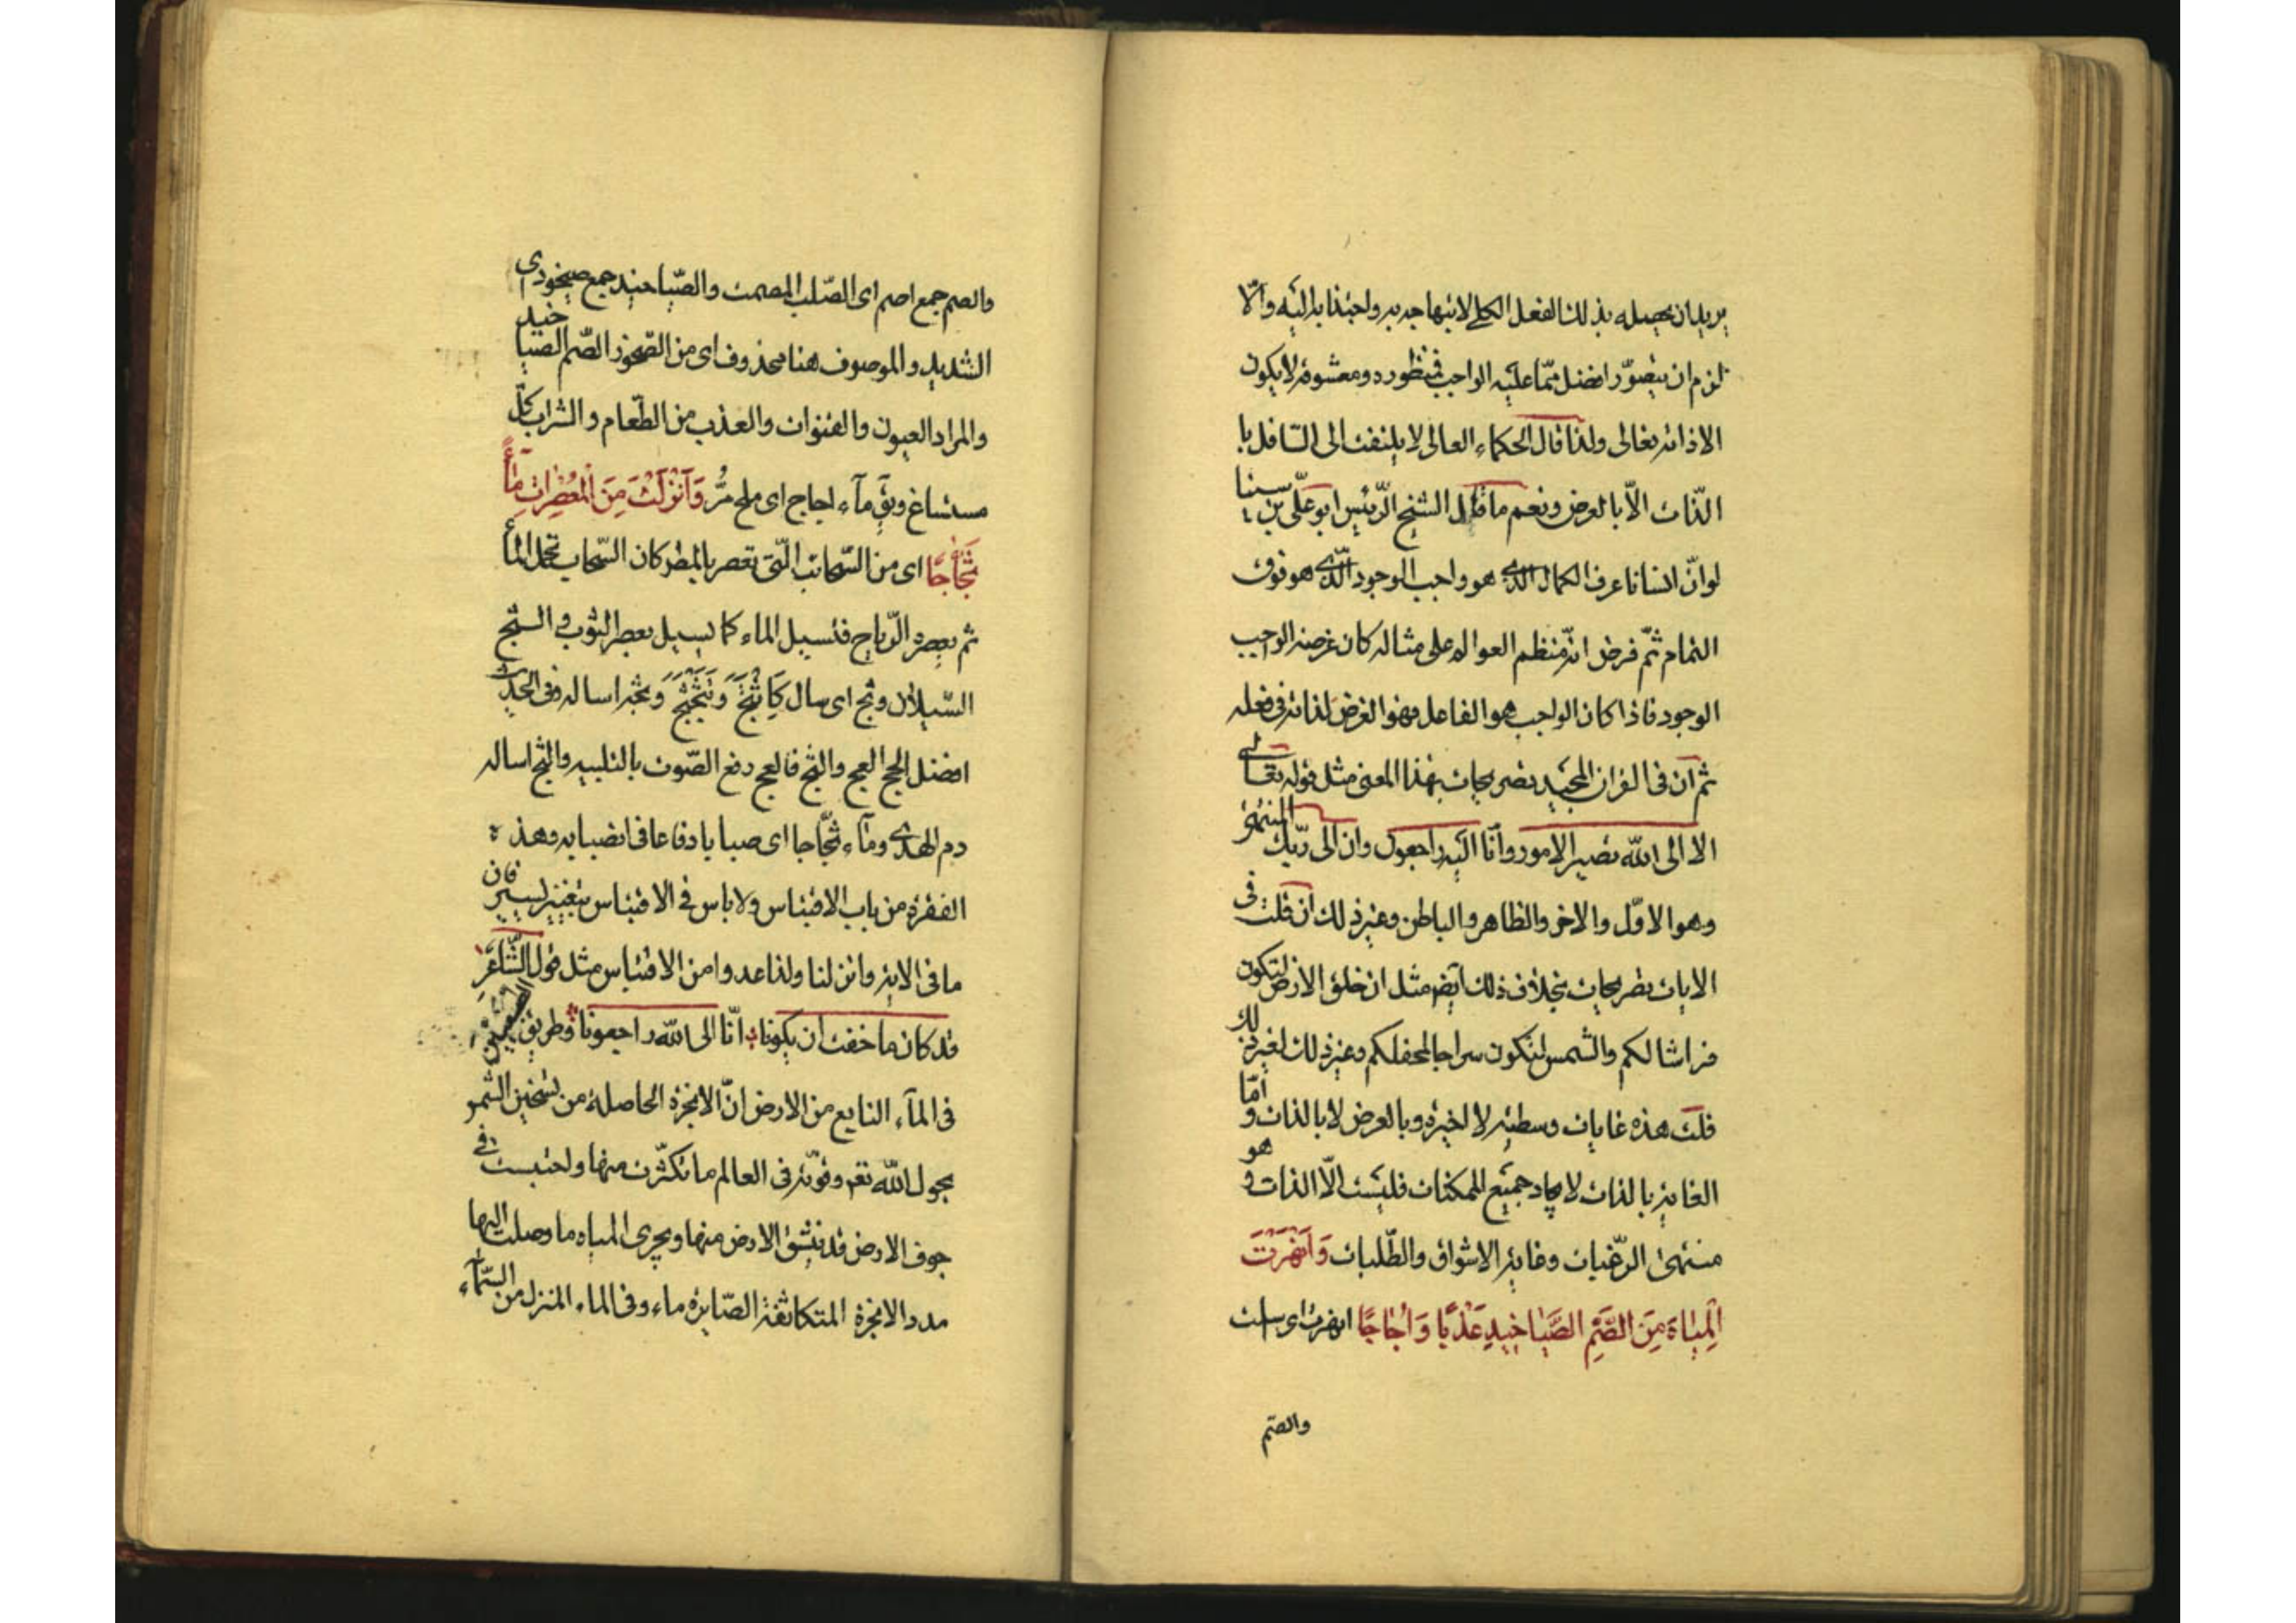 يريد ان يحصله بذلك الفعل الكلي لانتهاجه به واحتذابه اليه والّا
لزم ان يتصوّر افضل ممّا عليه الواجب فمنظوره ومعشوقه لا يكون
الا ذاته تعالى ولذا قال الحكماء العالى لا يلتفت الى السّافل با
الذّات الّا بالعرض ونعم ما قال الشيخ الرّئيس ابو علّى بن سينا
لو انّ انسانا عرف الكمال الّذى هو واجب الوجود الّذى هو فوق
التمام ثمّ فرض انّه منظم العوالم على مثاله كان غرضه الواجب
الوجود فاذا كان الواجب هو الفاعل فهو الغرض لذاته فى فعله
ثم انّ فى القران المجيد تصريحات بهذا المعنى مثل قوله تعالى
الا الى الله تصير الامور وانّا اليه راجعون وان الى ربّك المنتهى
وهو الاوّل والاخر والظاهر والباطن وغير ذلك ان قلت فى
الايات تصريحات بخلاف ذلك ايضا مثل ان خلق الارض لتكون
فراشا لكم والشمس لتكون سراجا لمحفلكم وغير ذلك لغير ذلك
قلت هذه غايات وسطيه لا اخيرة وبالعرض لا بالذات وامّا
الغايه بالذات لايجاد جميع الممكنات فليست الّا الذات وهو
منتهى الرّغبات وغاية الاشواق والطّلبات وَاَنْهَرْتَ
الْمِيٰاهَ مِنَ الصُّمِّ الصَّيٰاخٖيدِ عَذْبًا وَاُجٰاجًا انهرت اى اسلت
والصّم
والصم جمع اصم اى الصّلب المصمت والصّياخيد جمع صيخود اى
الشديد والموصوف هنا محذوف اى من الصّخور الصّم الصّياخيد
والمراد العيون والقنوات والعذب من الطّعام والشراب كلّ
مستساغ ويق مآء اجاج اى ملح مرّ وَاَنْزَلْتَ مِنَ الْمُعْصِرٰاتِ مٰآءً
ثَجّٰاجًا اى من السّحائب الّتى تعصر بالمطر كان السّحاب تحمل المآء
ثم تعصره الرّياح فتسيل الماء كما يسيل بعصر الثوب والثج
السّيلان وثج اى سال كَاَثْثَجَّ وَتَثَجْثَجَ وثجّه اساله وفى الحديث
افضل الحج العج والثج فالعج رفع الصّوت بالتلبيه والثج اساله
دم الهدى ومآء ثجّاجا اى صبابا دفاعا فى انصبابه وهذه
الفقرة من باب الاقتباس ولا باس فى الاقتباس بتغيير يسير فان
ما فى الاية وانزلنا ولذا عدوا من الاقتباس مثل قول الشّاعر
قد كان ما خفت ان يكونا انّا الى الله راجعونا وطريق
فى المآء النابع من الارض انّ الابخرة الحاصلة من تسخين الشمو
بحول الله تعم وقوّته فى العالم ما تكثّرت منها واحتبست فى
جوف الارض قد تنشق الارض منها ويجرى المياه ما وصلت اليها
مدد الابخرة المتكاثفة الصّايرة ماء وفى الماء المنزل من السّمآء